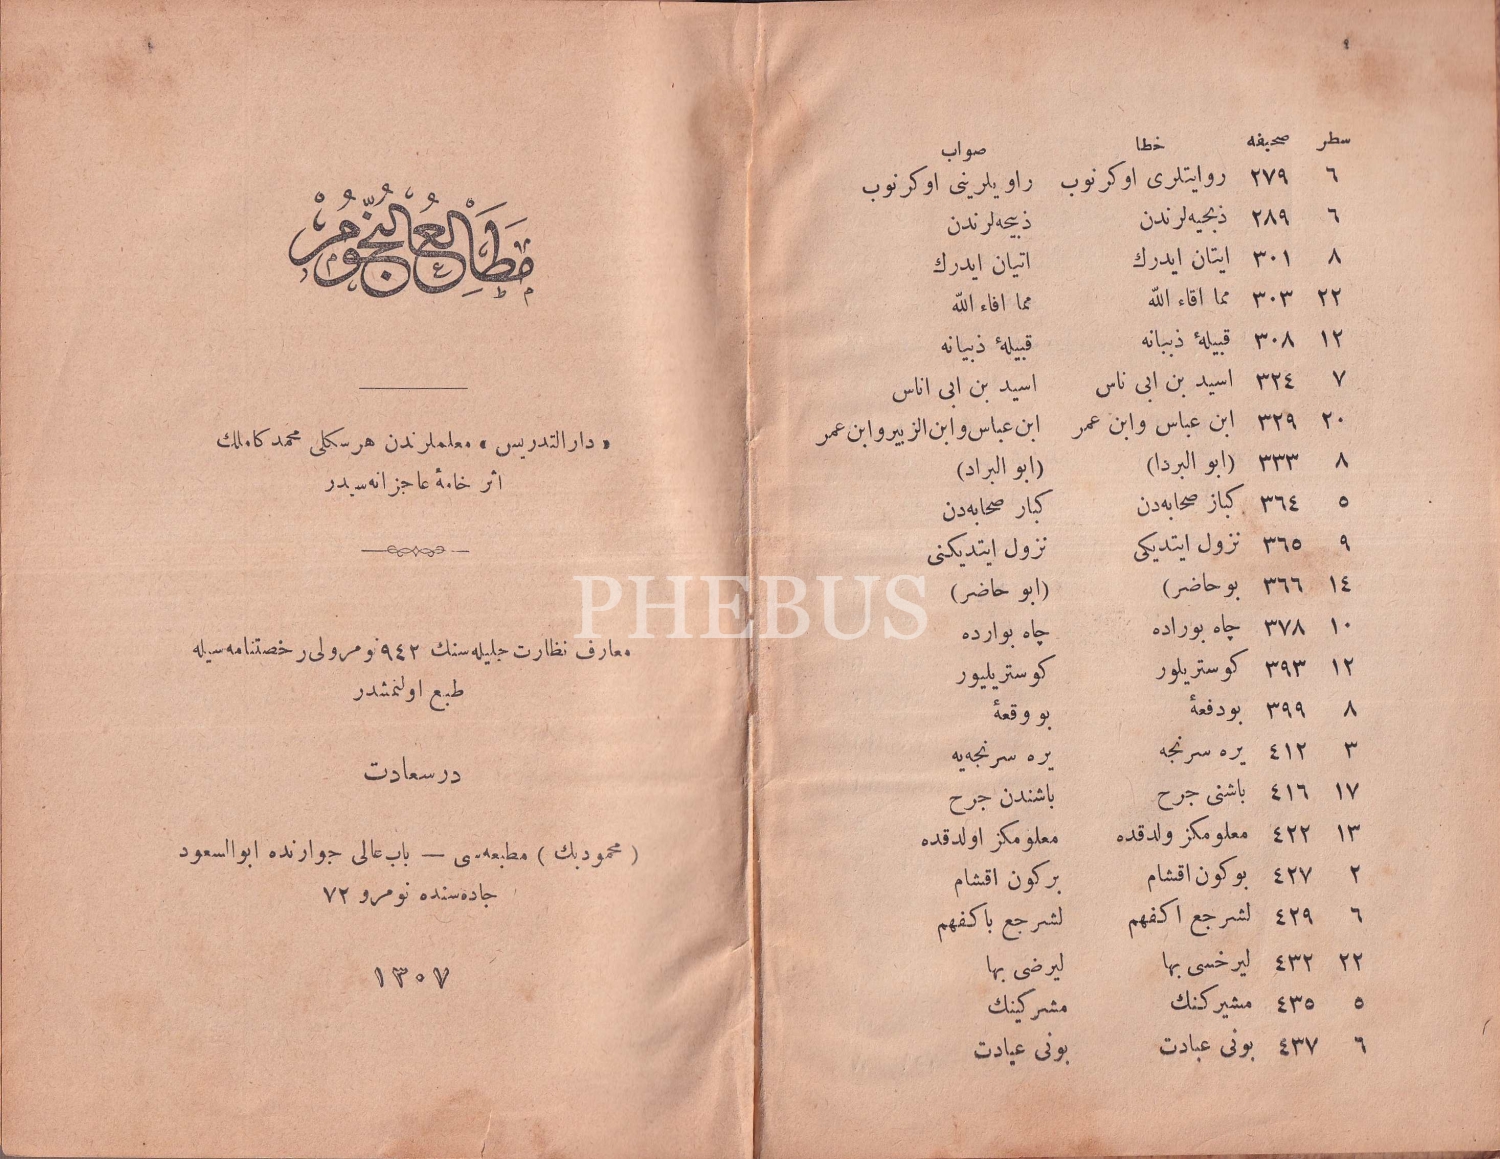 سطر صحیفه خطا صواب
٦ ٢٧٩ روایتلری اوکرنوب راویلرینی اوکرنوب
٦ ٢٨٩ ذبحیه‌لرندن ذبیحه‌لرندن
٨ ٣٠١ ایتان ایدرك اتیان ایدرك
٢٢ ٣٠٣ مما اقاء الله مما افاء الله
١٢ ٣٠٨ قبیلهٔ ذببانه قبیلهٔ ذبیانه
٧ ٣٢٤ اسید بن ابی ناس اسید بن ابی اناس
٢٠ ٣٢٩ ابن عباس وابن عمر ابن عباس وابن الزبیر وابن عمر
٨ ٣٣٣ (ابو البردا) (ابو البراد)
٥ ٣٦٤ کباز صحابه‌دن کبار صحابه‌دن
٩ ٣٦٥ نزول ایتدیکی نزول ایتدیکنی
١٤ ٣٦٦ بو حاضر) (ابو حاضر)
١٠ ٣٧٨ چاه بوراده چاه بوارده
١٢ ٣٩٣ کوستریلور کوستریلیور
٨ ٣٩٩ بودفعهٔ بو وقعهٔ
٣ ٤١٢ یره سرنجه یره سرنجه‌یه
١٧ ٤١٦ باشنی جرح باشندن جرح
١٣ ٤٢٢ معلومکز ولدقده معلومکز اولدقده
٢ ٤٢٧ بوکون اقشام برکون اقشام
٦ ٤٢٩ لشرجع اکفهم لشرجع باکفهم
٢٢ ٤٣٢ لیرخسی بها لیرضی بها
٥ ٤٣٥ مشیرکنك مشرکینك
٦ ٤٣٧ بونی عبادت بونی عیادت
مَطَالِعُ النُّجُومْ
« دار التدریس » معلملرندن هرسکلی محمد کاملك
اثر خامهٔ عاجزانه سیدر
معارف نظارت جلیله سنك ٩٤٢ نومرولی رخصتنامه سیله
طبع اولنمشدر
درسعادت
( محمود بك ) مطبعه‌سی — باب عالی جوارنده ابو السعود
جاده‌سنده نومرو ٧٢
١٣٠٧
PHEBUS